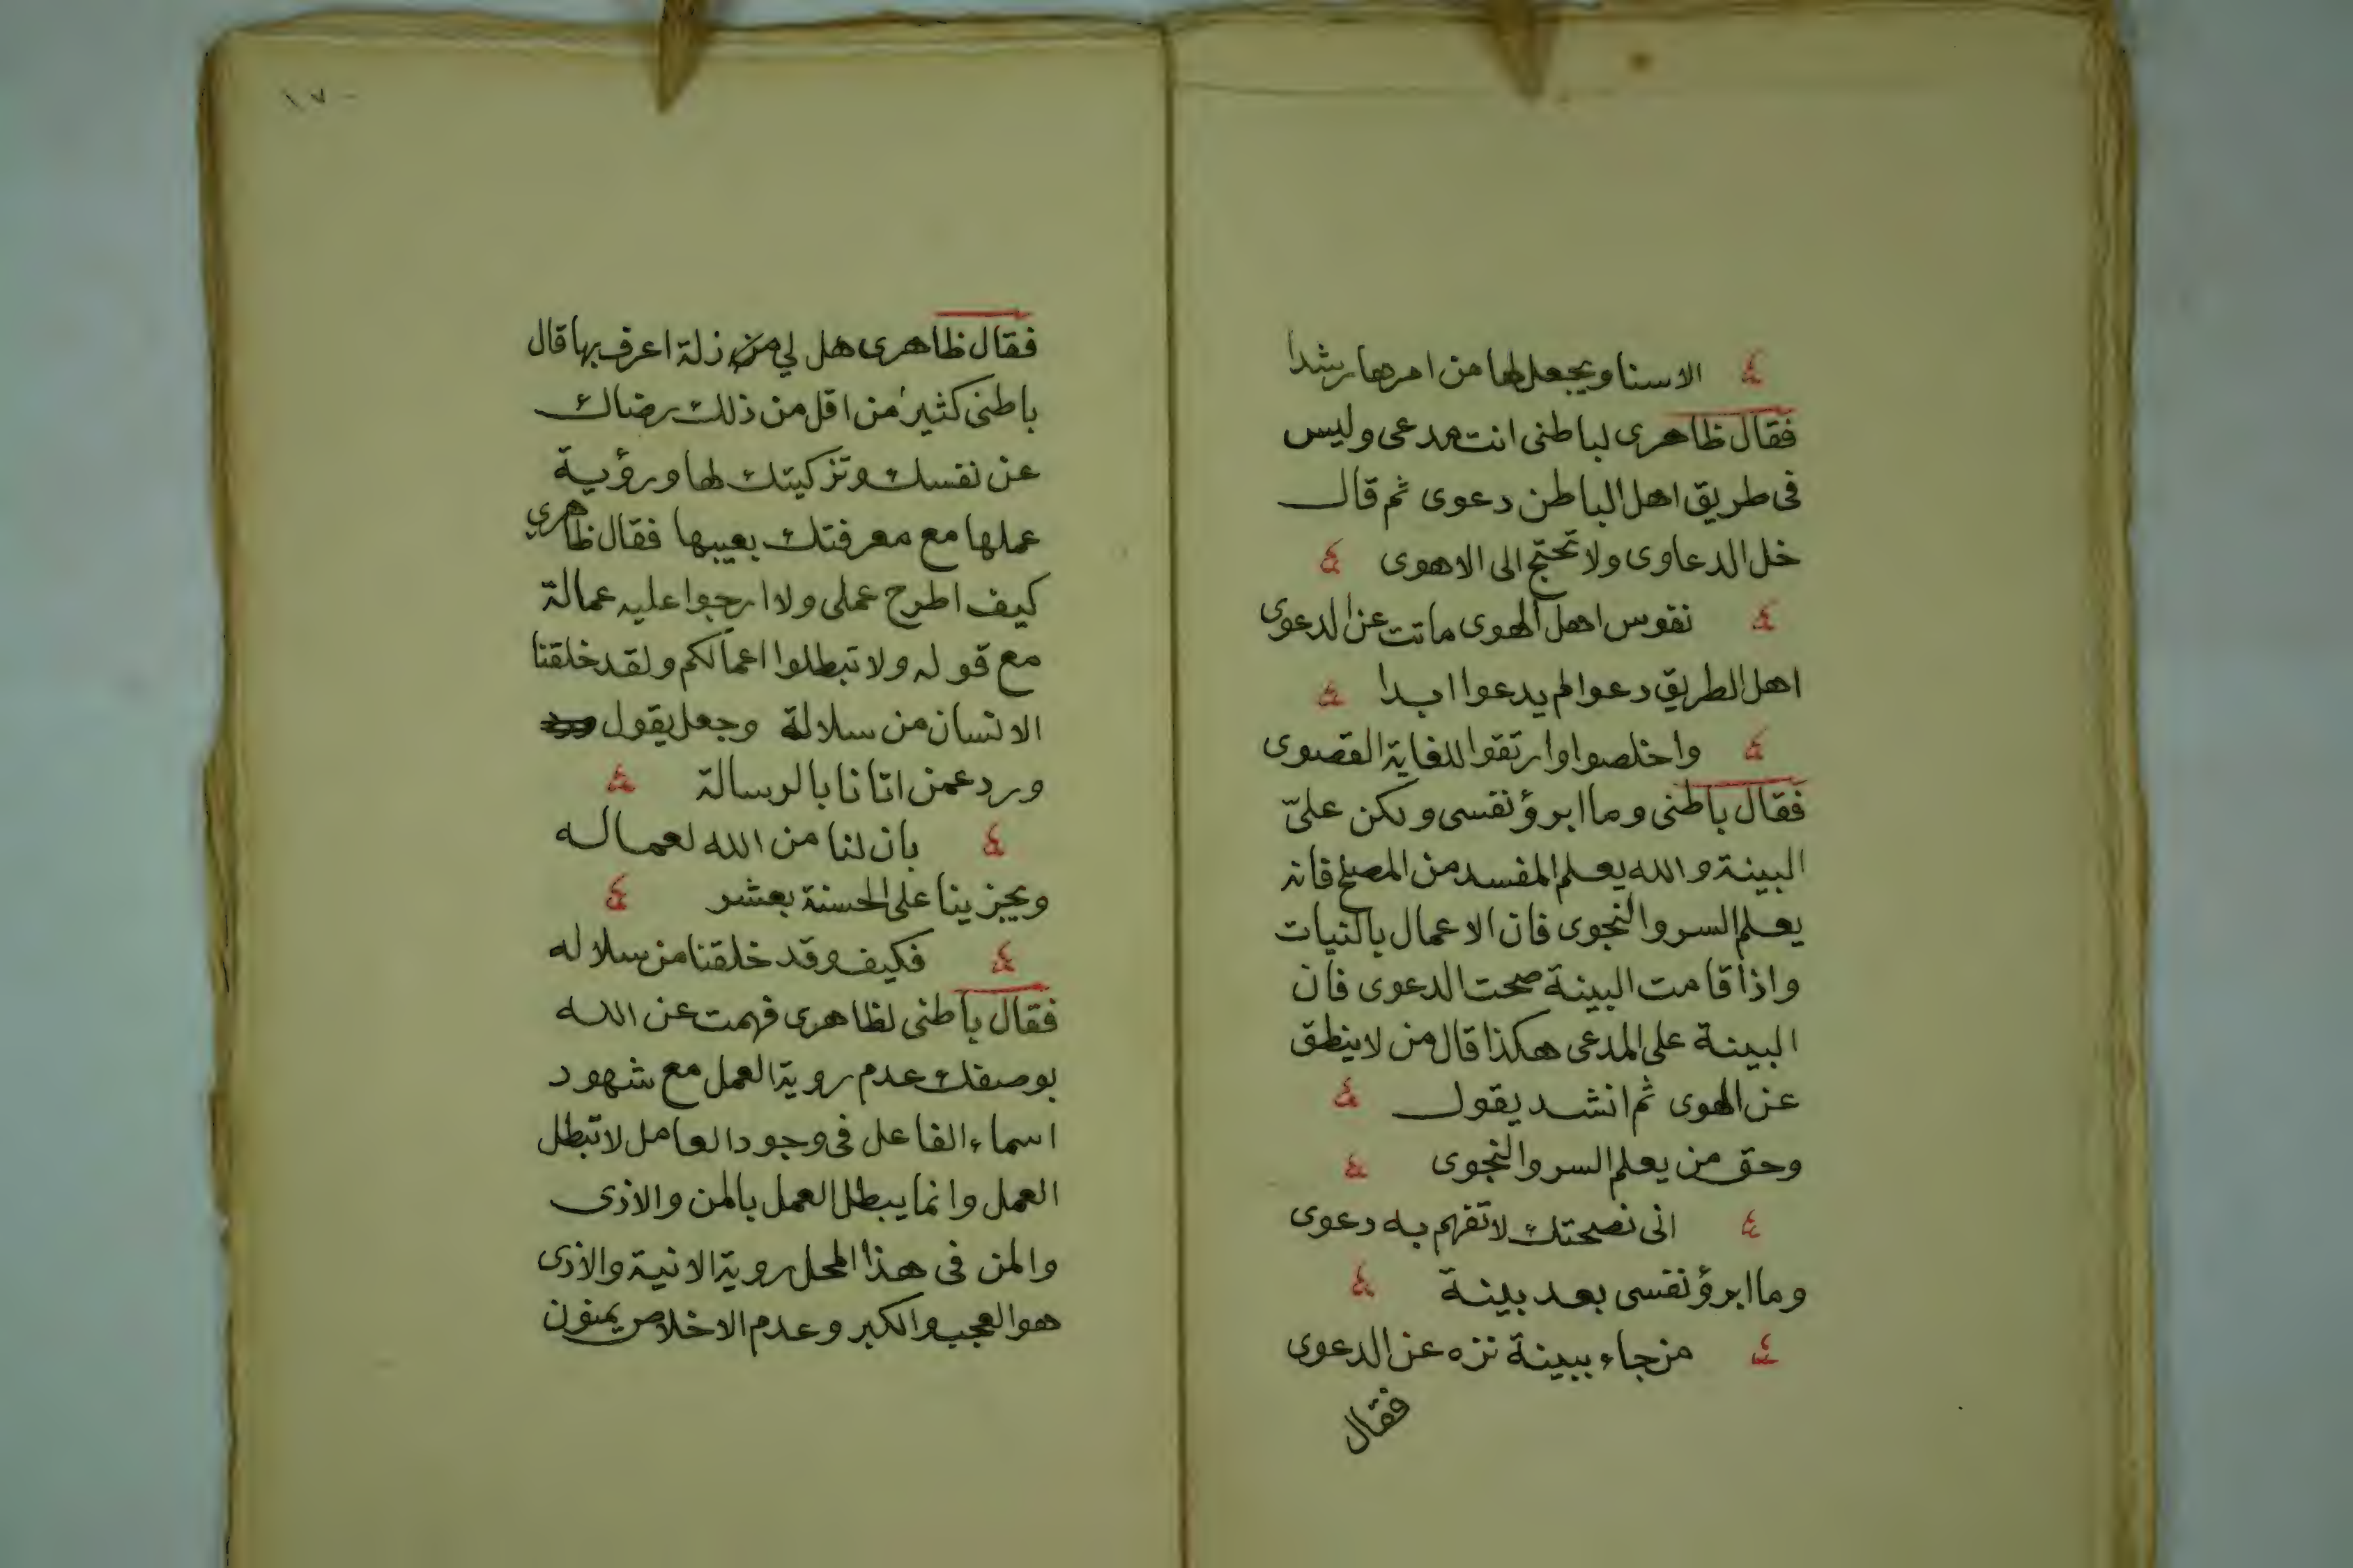 الاسنا ويجعل لها من امرها رشدا
فقال ظاهرى لباطنى انت مدعى وليس
فى طريق اهل الباطن دعوى ثم قال
خل الدعاوى ولا تحتج الى الاهوى
نفوس اهل الهوى ماتت عن الدعوى
اهل الطريق دعوا لم يدعوا ابدا
واخلصوا وارتقوا للغاية القصوى
فقال باطنى وما ابرؤ نفسى ولكن علىّ
البينة والله يعلم المفسد من المصلح فانه
يعلم السر والنجوى فان الاعمال بالنيات
واذا قامت البينة صحت الدعوى فان
البينة على المدعى هكذا قال من لا ينطق
عن الهوى ثم انشد يقول
وحق من يعلم السر والنجوى
انى نصحتك لا تفهم به دعوى
وما ابرؤ نفسى بعد بينة
من جاء ببينة نزه عن الدعوى
فقال
١٧
فقال ظاهرى هل لي من زلة اعرف بها قال
باطنى كثير من اقل من ذلك رضاك
عن نفسك وتزكيتك لها ورؤية
عملها مع معرفتك بعيبها فقال ظاهرى
كيف اطرح عملى ولا ارجوا عليه عمالة
مع قوله ولا تبطلوا اعمالكم ولقد خلقنا
الانسان من سلالة وجعل يقول
ورد عمن اتانا بالرسالة
بان لنا من الله لعماله
ويجزينا على الحسنة بعشر
فكيف وقد خلقنا من سلاله
فقال باطنى لظاهرى فهمت عن الله
بوصفك عدم روية العمل مع شهود
اسماء الفاعل فى وجود العامل لا تبطل
العمل وانما يبطل العمل بالمن والاذى
والمن فى هذا المحل روية الانية والاذى
هو العجب والكبر وعدم الاخلاص يمنون